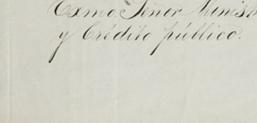 Exmo. Señor Minist
y Crédito público.